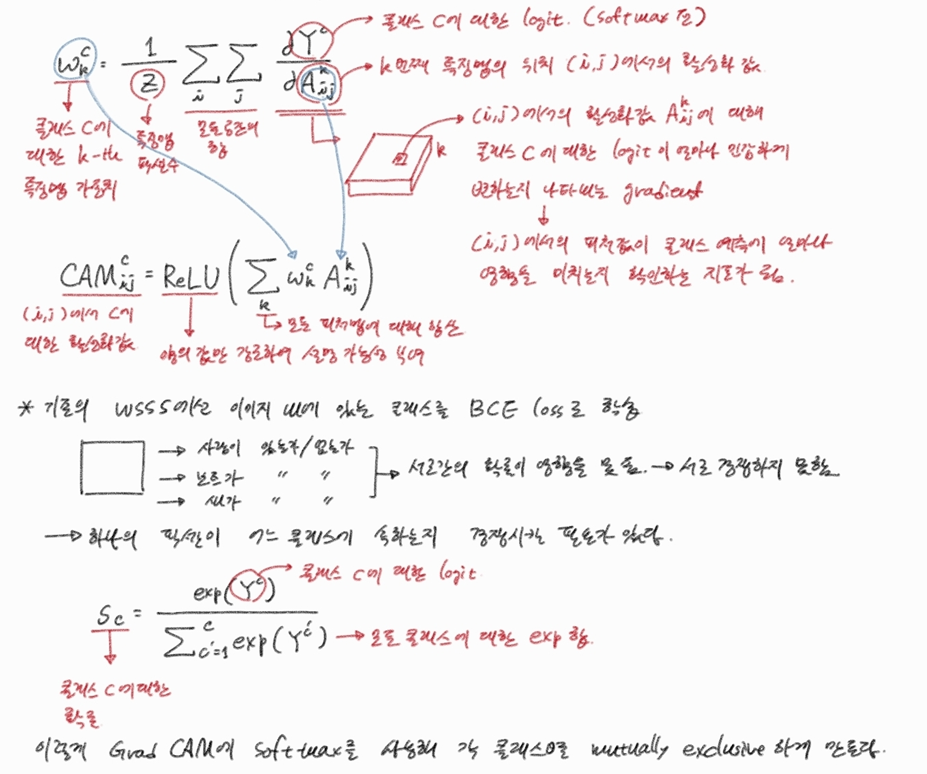 w_k^c = 1/Z Σ_i Σ_j ∂Y^c/∂A_ij^k
클래스 C에 대한 logit. (softmax 전)
k번째 특징맵의 위치 (i,j)에서의 활성화 값
클래스 C에
대한 k-th
특징맵 가중치
특징맵
픽셀수
모든 공간의
합
k
(i,j)에서의 활성화값 A_ij^k에 대해
클래스 C에 대한 logit이 얼마나 민감하게
변하는지 나타내는 gradient
(i,j)에서의 피처값이 클래스 예측에 얼마나
영향을 미치는지 확인하는 지표가 됨.
CAM_ij^c = ReLU(Σ_k w_k^c A_ij^k)
(i,j)에서 C에
대한 활성화값
모든 피처맵에 대해 합산
양의 값만 강조하여 설명 가능성 부여
* 기존의 WSSS에선 이미지 내에 있는 클래스를 BCE loss로 학습
→ 사람이 있는가/없는가
→ 보트가 〃 〃
→ 새가 〃 〃
→ 서로간의 확률이 영향을 못 줌. → 서로 경쟁하지 못함
→ 하나의 픽셀이 어느 클래스에 속하는지 경쟁시키는 필요가 있다.
클래스 C에 대한 logit
S_c = exp(Y^c) / Σ_{c'=1}^c exp(Y^c')
→ 모든 클래스에 대한 exp 합.
클래스 C에 대한
확률
이렇게 Grad CAM에 softmax를 사용해 각 클래스으로 mutually exclusive 하게 만든다.